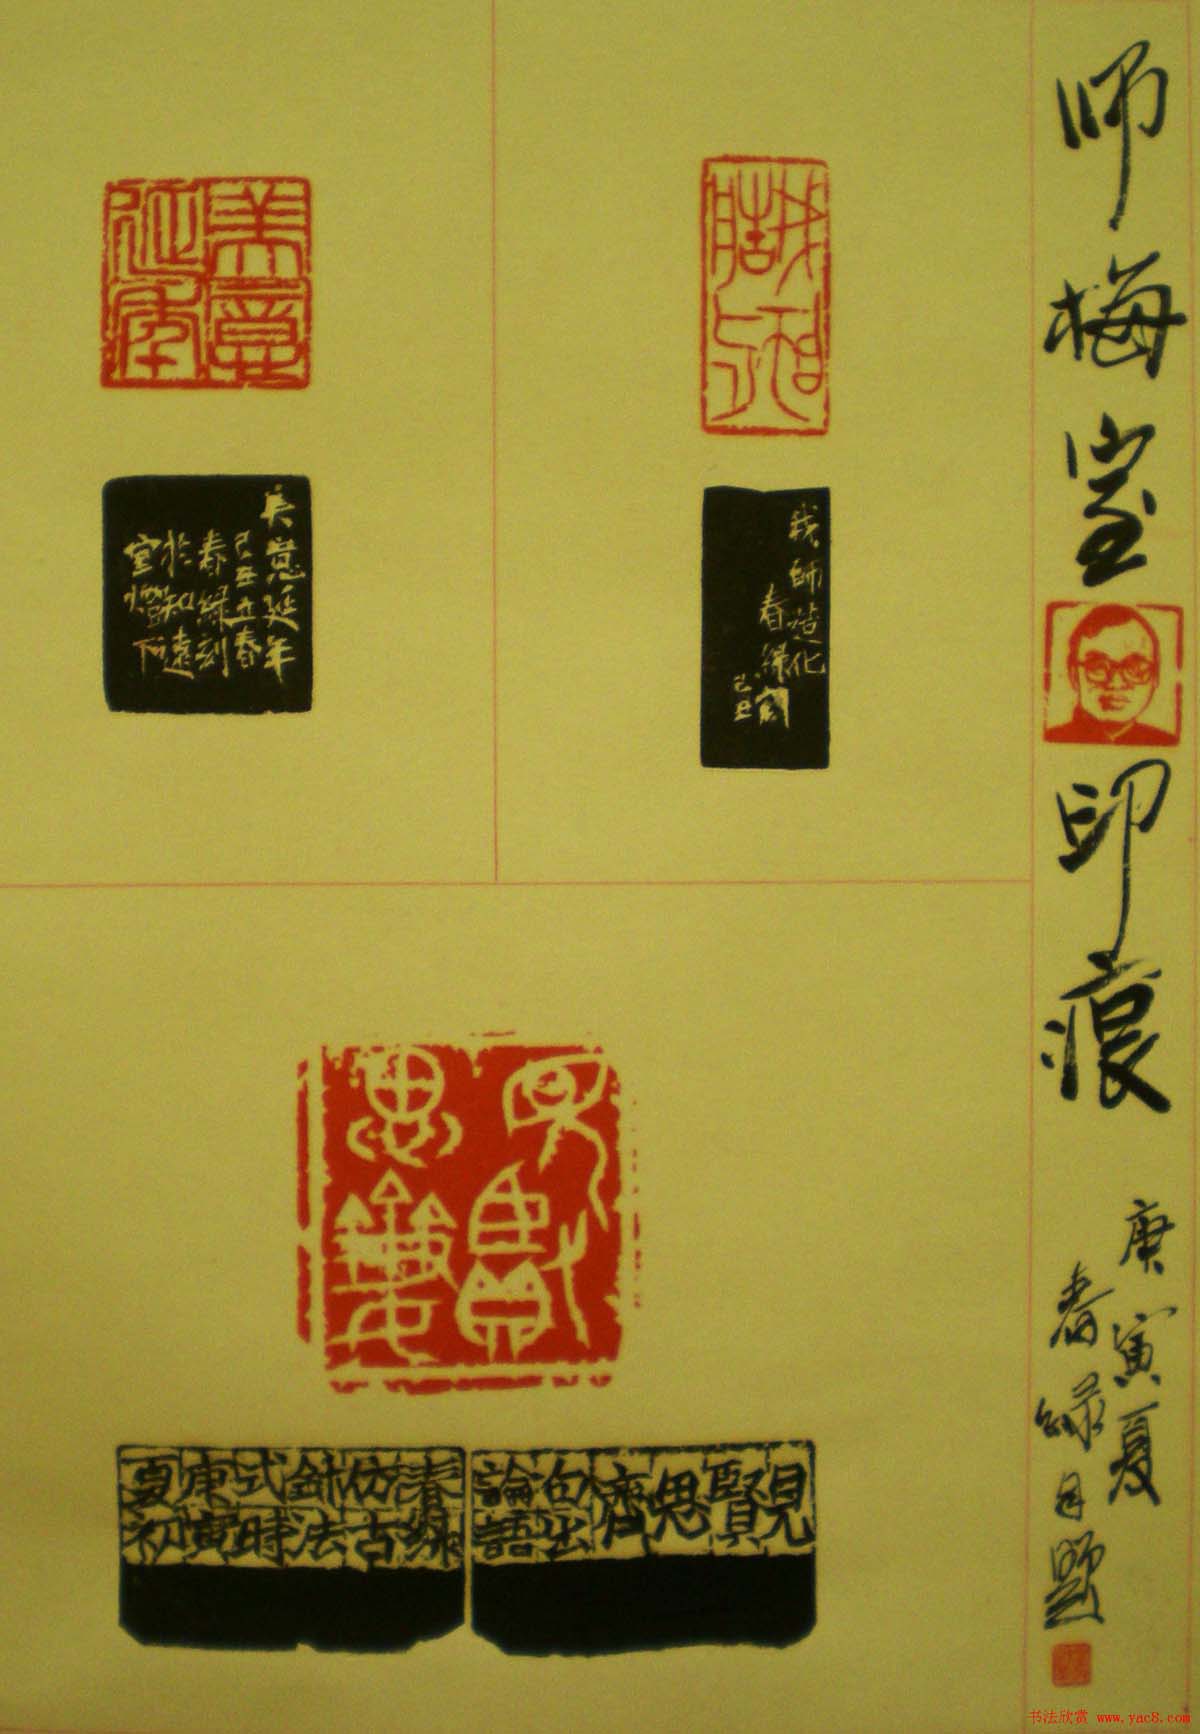 师梅室
印痕
庚寅夏
春绿自题
我师造化
美意延年
见贤思齐
我師造化
春绿
己丑
美意延年
己丑立春
春绿刻
於知遠
室燈下
見賢思齊
句出
論語
春绿
仿古
針法
式時
庚寅
夏初
书法欣赏 www.yac8.com